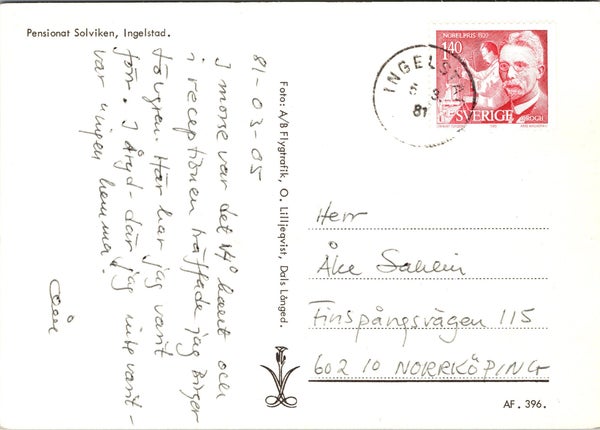 Pensionat Solviken, Ingelstad.
81-03-05
I morse var det 14° kallt och
i receptionen träffade jag Birger
Lövgren. Här har jag varit
förr. I Åryd - där jag inte varit -
var ingen hemma!
Foto: A/B Flygtrafik, O. Lilljeqvist, Dals Långed.
NOBELPRIS 1920
140
SVERIGE
KROGH
INGELSTAD
5 3
81
Herr
Åke Sahlin
Finspångsvägen 115
602 10 NORRKÖPING
AF. 396.